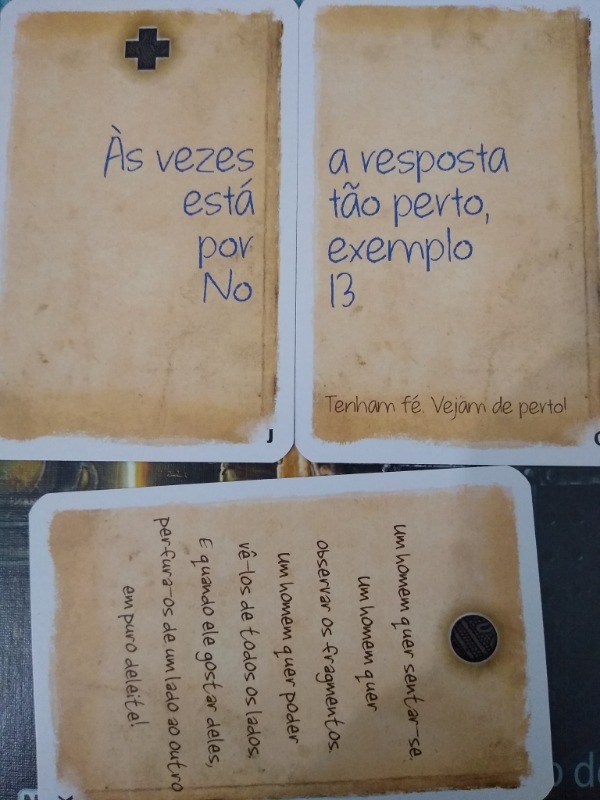 Às vezes
está
por
No
J
a resposta
tão perto,
exemplo
13
Tenham fé. Vejam de perto!
um homem quer sentar-se.
um homem quer
observar os fragmentos.
um homem quer poder
vê-los de todos os lados.
E quando ele gostar deles,
perfura-os de um lado ao outro
em puro deleite!